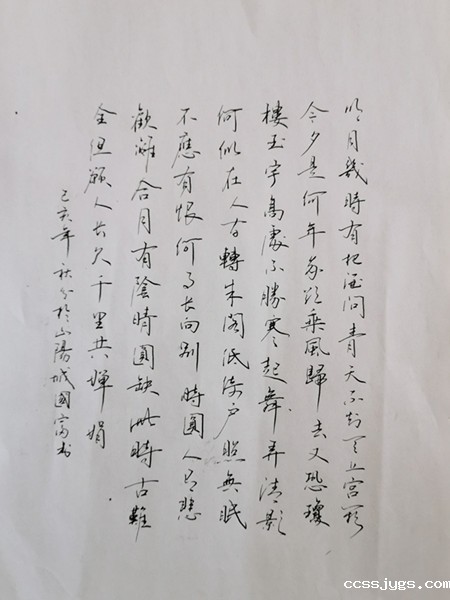 明月幾時有把酒问青天不知天上宫闕
今夕是何年我欲乘風歸去又恐瓊
樓玉宇高處不勝寒起舞弄清影
何似在人间轉朱阁低绮户照無眠
不應有恨何事长向别時圓人有悲
歡離合月有陰晴圓缺此時古難
全但願人长久千里共嬋娟
己亥年秋分於山陽城國富书
ccssjygs.com